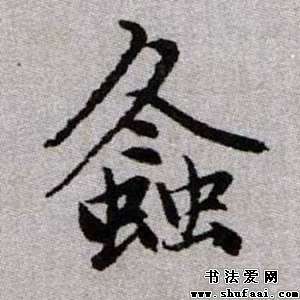 螽
书法爱网
www.shufaai.com